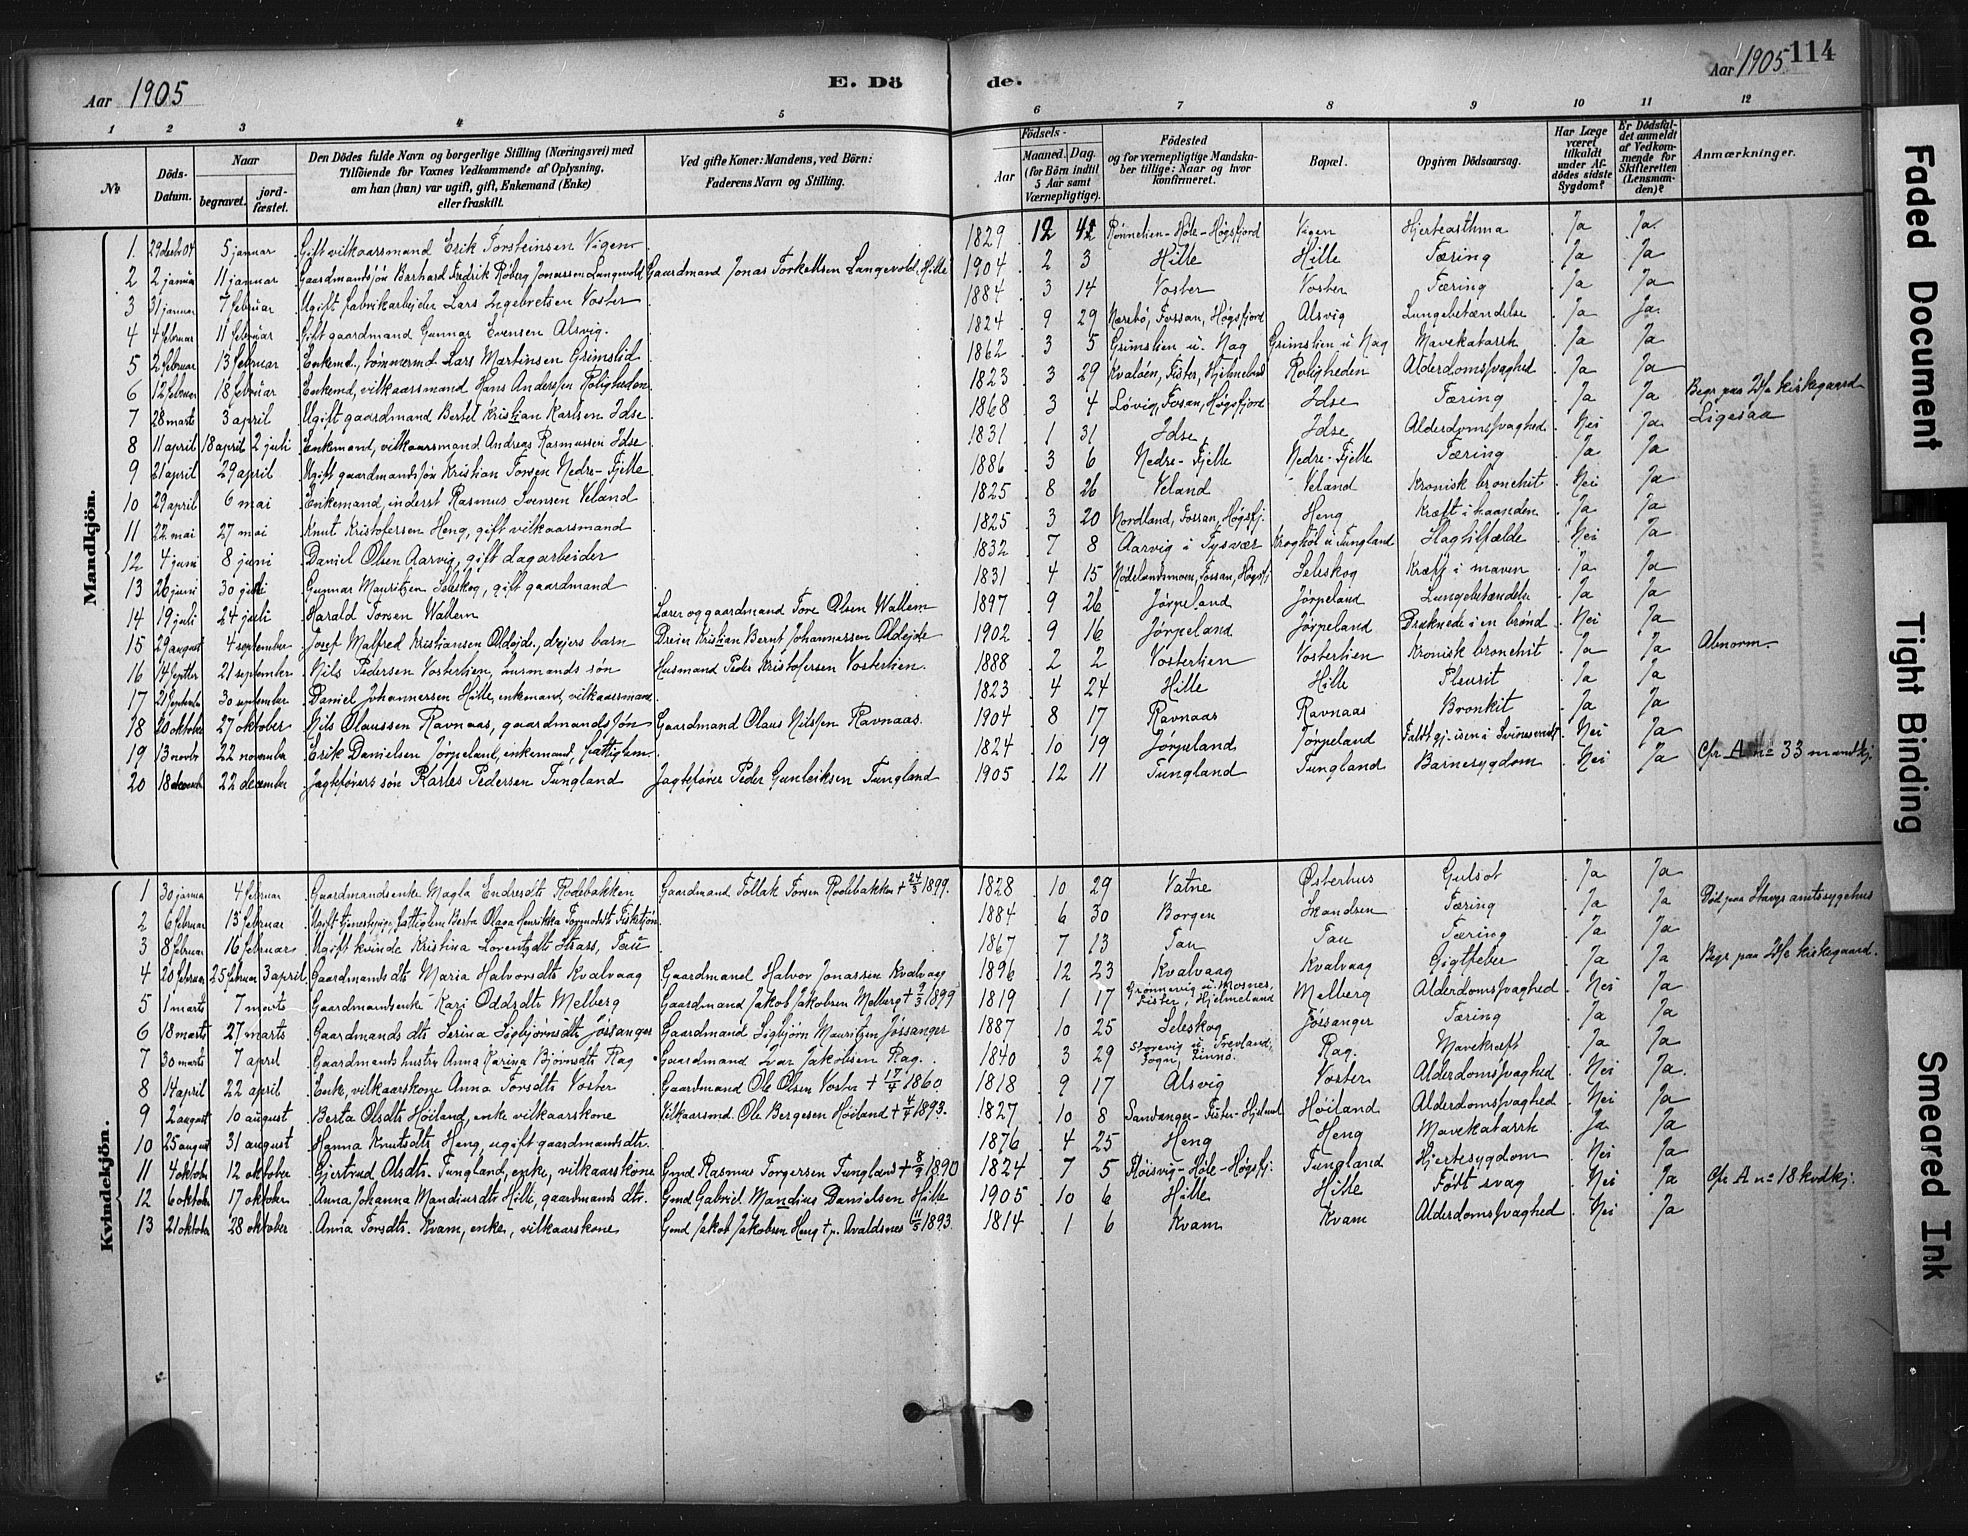 Aar 1905
E. Dö
de.
Aar 1905
114
1 2 3 4 5 6 7 8 9 10 11 12
No
Döds-Datum.
Naar
begravet.
jord-fæstet.
Den Dödes fulde Navn og borgerlige Stilling (Næringsvei) med
Tilföiende for Voxnes Vedkommende af Oplysning,
om han (hun) var ugift, gift, Enkemand (Enke)
eller fraskilt.
Ved gifte Koner: Mandens, ved Börn:
Faderens Navn og Stilling.
Födsels-
Aar
Maaned.
Dag.
(for Börn indtil
5 Aar samt
Værnepligtige).
Födested
og for værnepligtige Mandska-
ber tillige: Naar og hvor
konfirmeret.
Bopæl.
Opgiven Dödsaarsag.
Har Læge
været
tilkaldt
under Af-
dödes sidste
Sygdom?
Er Dödsfal-
det anmeldt
af Vedkom-
mende for
Skifteretten
(Lensman-
den)?
Anmærkninger.
Mandkjön.
1 29 decbr 04 5 januar Gift vilkaarsmand Erik Torsteinsen Vigen 1829 12 Rönnelien-Höle-Högsfjord Vigen Hjerteasthma Ja Ja
2 2 januar 11 januar Gaardmandssøn Fredrik Roberg Jonassen Langevold Gaardmand Jonas Torkellsen Langevold, Hille 1904 2 3 Hille Hille Tæring Ja Ja
3 31 januar 7 februar Ugift fabrikarbeider Lars Ingebretsen Voster 1884 3 14 Voster Voster Tæring Ja Ja
4 4 februar 11 februar Gift gaardmand Gunnar Evensen Alsvig. 1824 9 29 Nærebö, Fossan, Högsfjord Alsvig Lungebetændelse Ja Ja
5 2 februar 13 februar Enkemd., tømmermd Lars Martinsen Grimslid 1862 3 5 Grimslien u. Nag Grimslien u Nag Mavekatarrh Ja Ja
6 12 februar 18 februar Enkemd, vilkaarsmand Hans Anderssen Roligheden 1823 3 29 Kvalöen, Fister, Hjelmeland Roligheden Alderdomssvaghed Ja Ja
7 28 marts 3 april Ugift gaardmand Bertel Kristian Karlsen Idse 1868 3 4 Lövig, Fosan, Högsfjord Idse Tæring Ja Ja Begr. paa Idse kirkegaard
8 11 april 18 april 2 juli Enkemand, vilkaarsmand Andreas Rasmussen Idse 1831 1 31 Idse Idse Alderdomssvaghed Nei Ja Ligesaa
9 21 april 29 april Ugift gaardmandssøn Kristian Torsen Nedre-Fjelle 1886 3 6 Nedre-Fjelle Nedre-Fjelle Tæring Ja Ja
10 29 april 6 mai Enkemand, inderst Rasmus Svensen Veland 1825 8 26 Veland Veland Kronisk bronchit Nei Ja
11 22 mai 27 mai Knut Kristofersen Heng, gift vilkaarsmand 1825 3 20 Nordland, Fossan, Högsfj. Heng Kræft i haanden Ja Ja
12 4 juni 8 juni Daniel Olsen Aarvig, gift dagarbeider 1832 7 8 Aarvig i Tysvær Kroghöl u Tungland Slagtilfælde Nei Ja
13 26 juni 30 juni Gunnar Mauritzen Seleskog, gift gaardmand 1831 4 15 Nödelandsmoen, Fossan, Högsfj. Seleskog Kræft i maven Ja Ja
14 19 juli 24 juli Harald Torsen Wallem Lærer og gaardmand Tore Olsen Wallem 1897 9 26 Jörpeland Jörpeland Lungebetændelse Ja Ja
15 29 august 4 september Josef Malfred Kristiansen Oldejde, drejers barn Dreier Kristian Bernt Johannessen Oldejde 1902 9 16 Jörpeland Jörpeland Druknede i en brönd Nei Ja
16 14 septbr 21 september Nils Pedersen Vosterlien, husmands sön Husmand Peder Kristofersen Vosterlien. 1888 2 2 Vosterlien Vosterlien Kronisk bronchit Ja Ja Abnorm.
17 21 septembr 30 september Daniel Johannessen Hille, enkemand, vilkaarsmand 1823 4 24 Hille Hille Pleurit Ja Ja
18 20 oktober 27 oktober Nils Olaussen Ravnaas, gaardmandssøn Gaardmand Olaus Nilssen Ravnaas. 1904 8 17 Ravnaas Ravnaas Bronkit Ja Ja
19 13 novbr 22 november Erik Danielsen Jörpeland, enkemand, fattiglem. 1824 10 19 Jörpeland Jörpeland Faldt gj. isen i Nei Ja
20 18 decembr 22 december Jagtførers søn Karles Pedersen Tungland Jagtefører Peder Gunleiksen Tungland 1905 12 11 Tungland Tungland Barnesygdom Nei Ja Cfr. A no 33 mandkj.
Kvindekjön.
1 30 januar 4 februar Gaardmandsenke Magla Endresdtr Rodebakken Gaardmand Tollak Torsen Rodebakken + 24/3 1899. 1828 10 29 Vatne Østerhus Gulsot Ja Ja
2 6 februar 13 februar Ugift tjenestepige, fattiglem Berta Olava Henrikka Tormodsdtr Fisktjön 1884 6 30 Borgen Skandsen Tæring Ja Ja Död paa Stavgr amtssygehus
3 8 februar 16 februar Ugift kvinde Kristina Lorentzdtr Strass, Tau 1867 7 13 Tau Tau Tæring Ja Ja
4 20 februar 25 februar 3 april Gaardmandsdtr Maria Halvorsdtr Kvalvaag Gaardmand Halvor Jonassen Kvalvaag 1896 12 23 Kvalvaag Kvalvaag Gigtfeber Ja Ja Begr. paa Idse kirkegaard.
5 1 marts 7 marts Gaardmandsenke Kari Oddsdtr Melberg Gaardmand Jakob Jakobsen Melberg + 9/3 1899 1819 1 17 Grönnevig u. Mosnes, Fister, Hjelmeland Melberg Alderdomssvaghed Nei Ja
6 18 marts 27 marts Gaardmandsdtr Serina Sigbjörnsdtr Jössanger Gaardmand Sigbjörn Mauritzen Jössanger 1887 10 25 Seleskog Jössanger Tæring Ja Ja
7 30 marts 7 april Gaardmandshustru Anna Karina Björnsdtr Rag Gaardmand Ivar Jakobsen Rag. 1840 3 29 Storevig u. Trevland, Sogn, Finnö. Rag. Mavekræft Ja Ja
8 14 april 22 april Enke, vilkaarskone Anna Torsdtr Voster Gaardmand Ole Olsen Voster + 17/4 1860 1818 9 17 Alsvig Voster Alderdomssvaghed Nei Ja
9 2 august 10 august Berta Olsdtr Höiland, enke vilkaarskone Vilkaarsmd. Ole Bergesen Höiland + 4/4 1893. 1827 10 8 Sandanger-Fister-Hjelmel. Höiland Alderdomssvaghed Nei Ja
10 25 august 31 august Hanna Knutsdtr Heng ugift gaardmandsdtr. 1876 4 25 Heng Heng Mavekatarrh Ja Ja
11 4 oktober 12 oktober Gjertrud Olsdtr. Tungland, enke, vilkaarskone Gmd Rasmus Torgersen Tungland + 8/9 1890 1824 7 5 Röisvig-Höle-Högsfj. Tungland Hjertesygdom Nei Ja
12 6 oktober 17 oktober Anna Johanna Mandiusdtr Hille, gaardmands dtr. Gmd Gabriel Mandius Danielsen Hille 1905 10 6 Hille Hille Født svag Nei Ja Cfr A no 18 kvdkj.
13 21 oktober 28 oktober Anna Torsdtr. Kvam, enke, vilkaarskone Gmd Jakob Jakobsen Heng + p. Avaldsnes 11/5 1893. 1814 1 6 Kvam Kvam Alderdomssvaghed Nei Ja
Faded Document
Tight Binding
Smeared Ink